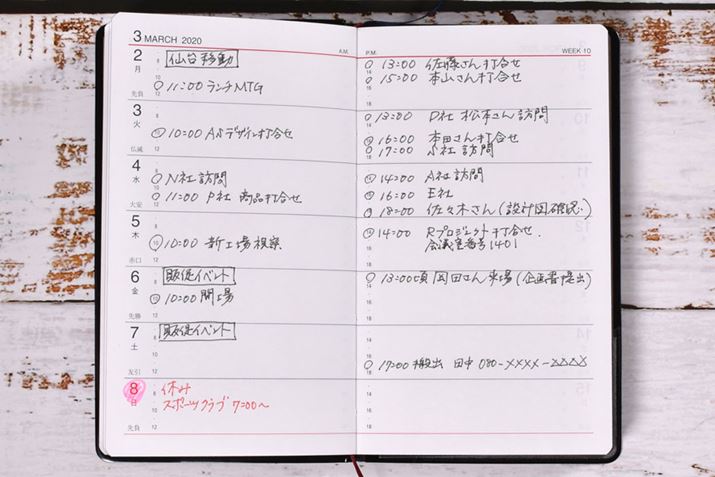 3 MARCH 2020
A.M.
P.M.
WEEK 10
2
月
先負
仙台移動
11:00 ランチMTG
13:00 佐藤さん打合せ
15:00 本山さん打合せ
3
火
仏滅
10:00 Aルデザイン打合せ
13:00 D社 松本さん訪問
16:00 本田さん打合せ
17:00 小社訪問
4
水
大安
N社訪問
11:00 P社 商品打合せ
14:00 A社訪問
16:00 E社
18:00 佐々木さん(設計図確認)
5
木
赤口
10:00 新工場視察
14:00 Rプロジェクト打合せ
会議室番号1401
6
金
先勝
販促イベント
10:00 開場
13:00頃 岡田さん来場(企画書提出)
7
土
友引
販促イベント
19:00 搬出 田中 080-××××-△△△△
8
日
先負
休み
スポーツクラブ 7:00〜